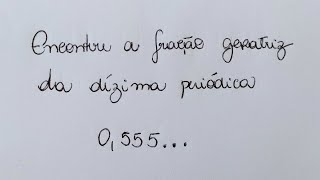 Encontre a fração geratriz
da dízima periódica
0,555...